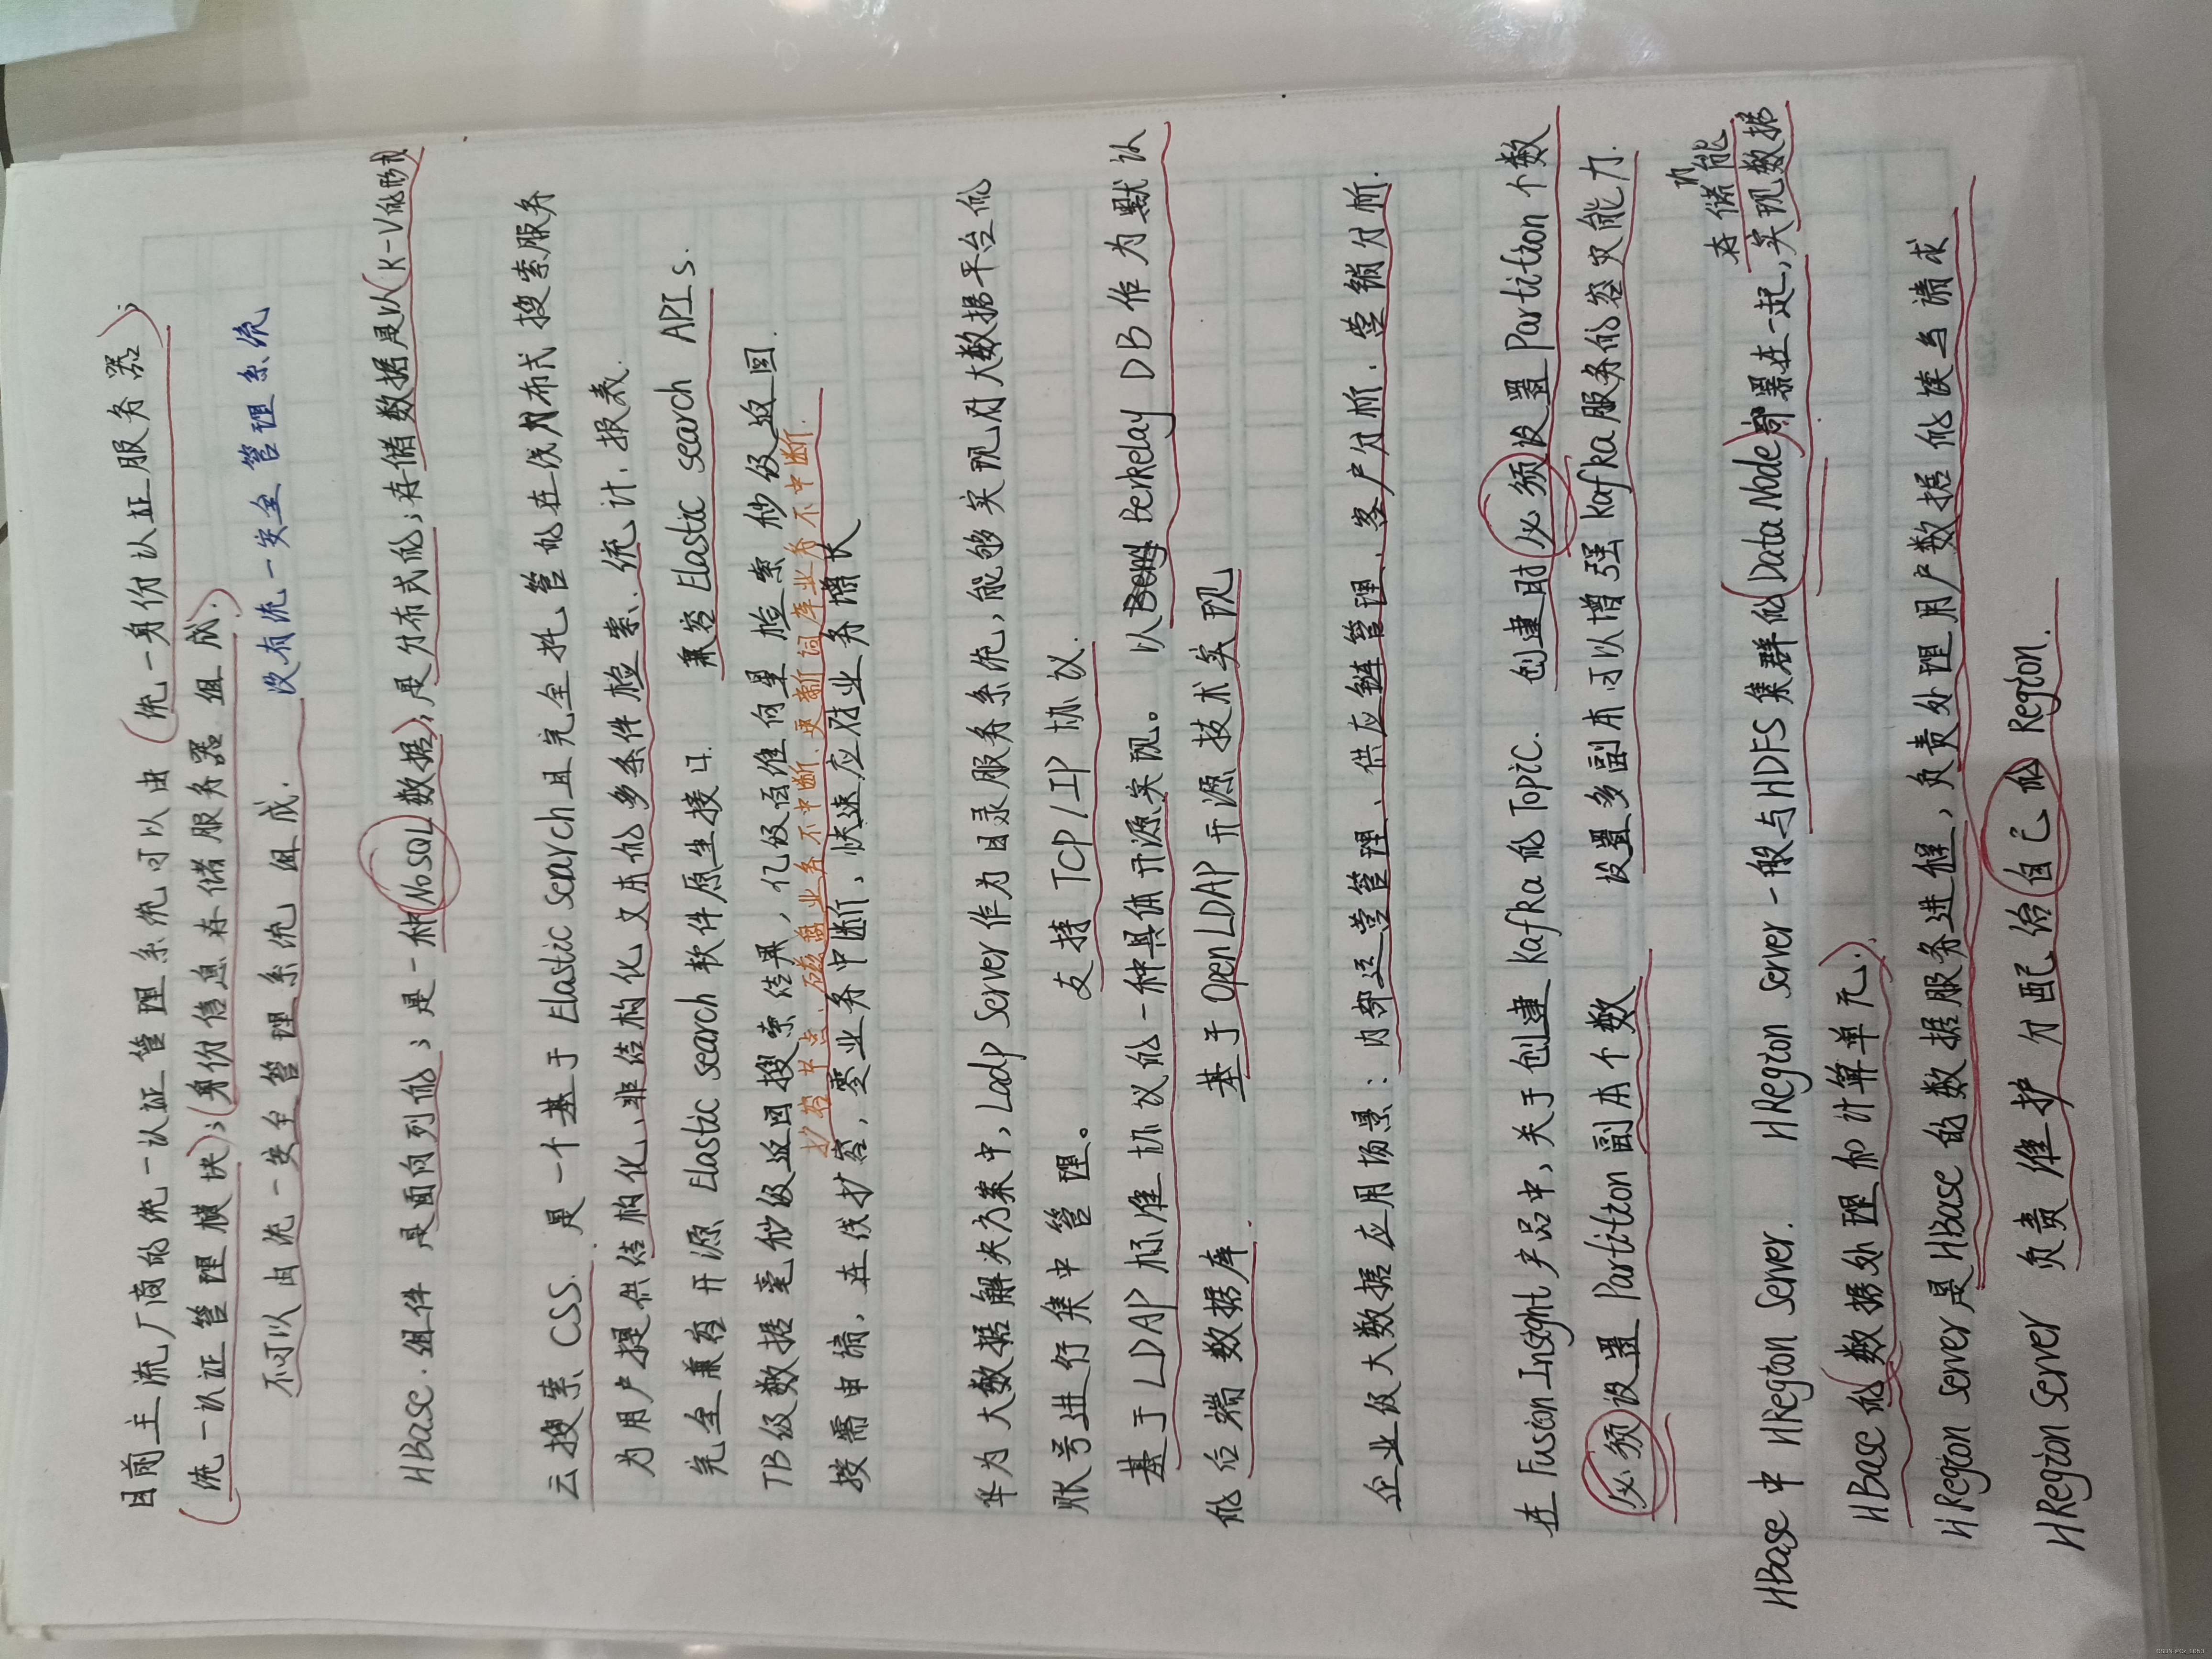 目前主流厂商的统一认证管理系统可以由(统一身份认证服务器);
(统一认证管理模块);(身份信息存储服务器组成.)
不可以由统一安全管理系统 组成. 没有统一安全管理系统
HBase.组件 是面向列的;是一种(NoSQL数据);是分布式的;存储数据是以(K-V的形式
云搜索 CSS. 是一个基于Elastic Search且完全托管的在线分布式搜索服务
为用户提供结构化、非结构化文本的多条件检索、统计、报表.
完全兼容开源 Elastic search 软件原生接口. 兼容 Elastic search APIs.
TB级数据毫秒级返回搜索结果,亿级百维向量检索秒级返回.
扩容节点、磁盘业务不中断、更新词库业务不中断.
按需申请,在线扩容,零业务中断,快速应对业务增长
华为大数据解决方案中,Ladp Server作为目录服务系统,能够实现对大数据平台的
账号进行集中管理。 支持TCP/IP协议.
基于LDAP标准协议的一种具体开源实现。 以Berkelay DB作为默认
的后端数据库. 基于OpenLDAP开源技术实现
企业级大数据应用场景:内部运营管理、供应链管理、客户分析、营销分析.
在FusionInsight产品中,关于创建kafka的Topic. 创建时必须设置Partition个数
必须设置Partition副本个数 设置多副本可以增强kafka服务的容灾能力.
存储能
HBase中HRegion Server. HRegion Server一般与HDFS集群的(DataNode)部署在一起,实现数据的
HBase的(数据处理和计算单元).
HRegion Server是HBase的数据服务进程,负责处理用户数据的读写请求
HRegion Server 负责维护分配给自己的Region.
CSDN @Cr_1053